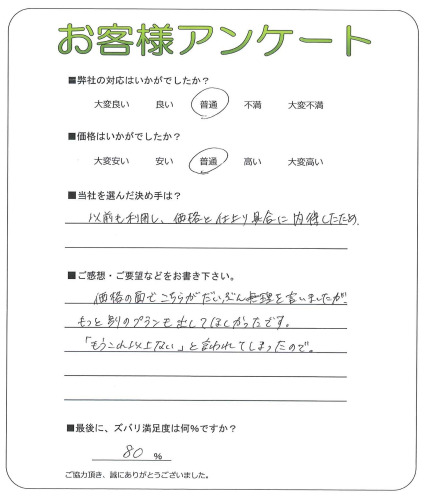 お客様アンケート
■弊社の対応はいかがでしたか？
大変良い　良い　普通　不満　大変不満
■価格はいかがでしたか？
大変安い　安い　普通　高い　大変高い
■当社を選んだ決め手は？
以前も利用し、価格と仕上り具合に期待したため。
■ご感想・ご要望などをお書き下さい。
価格の面でこちらがだいぶん無理を言いましたが
もっと別のプランも出してほしかったです。
「もうこれ以上ない」と言われてしまったので。
■最後に、ズバリ満足度は何％ですか？
80 ％
ご協力頂き、誠にありがとうございました。